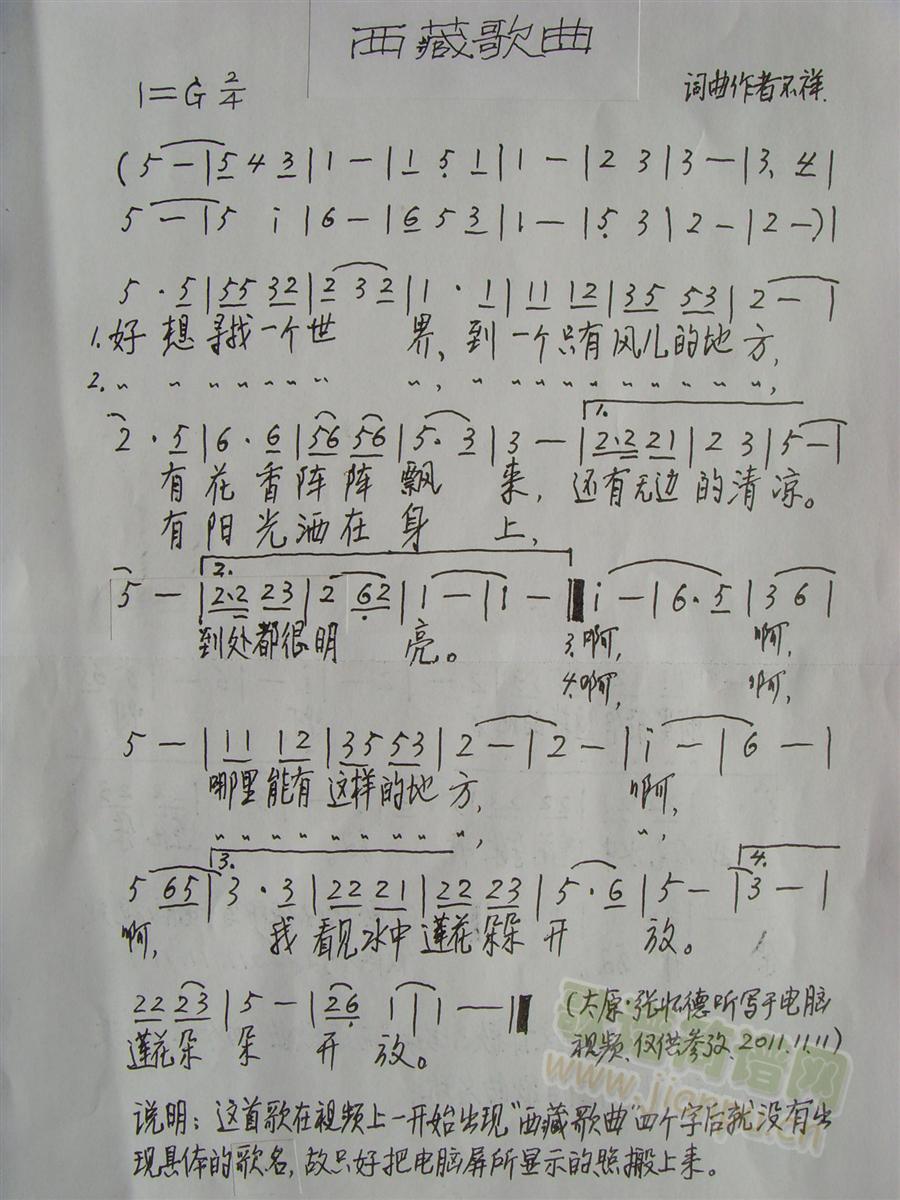 西藏歌曲
1=G 2/4
词曲作者不祥.
(5 — | 5 4 3 | 1 — | 1 5 1 | 1 — | 2 3 | 3 — | 3. 4 |
5 — | 5 i | 6 — | 6 5 3 | 1 — | 5 3 | 2 — | 2 —) |
5 · 5 | 55 32 | 2 3 2 | 1 · 1 | 11 12 | 35 53 | 2 — |
1.好想寻找一个世界,到一个只有风儿的地方,
2. 〃 〃 〃 〃 〃 〃 〃 〃, 〃 〃 〃 〃 〃 〃 〃 〃 〃 〃 〃,
1.
2 · 5 | 6 · 6 | 56 56 | 5. 3 | 3 — | 2·2 21 | 2 3 | 5 — |
有花香阵阵飘来,还有无边的清凉。
有阳光洒在身上,
2.
5 — | 2·2 23 | 2 62 | 1 — | 1 — | i — | 6·5 | 3 6 |
到处都很明亮。 3.啊, 啊,
4.啊, 啊,
5 — | 11 12 | 35 53 | 2 — | 2 — | i — | 6 — |
哪里能有这样的地方, 啊,
〃 〃 〃 〃 〃 〃 〃 〃 〃, 〃,
3. 4.
5 65 | 3 · 3 | 22 21 | 22 23 | 5 · 6 | 5 — | 3 — |
啊, 我看见水中莲花朵朵开放。
22 23 | 5 — | 26 1 | 1 — |
莲花朵朵开放。
(太原·张怀德听写于电脑
视频、仅供参考、2011.11.11)
说明：这首歌在视频上一开始出现"西藏歌曲"四个字后就没有出
现具体的歌名,故只好把电脑屏所显示的照搬上来。